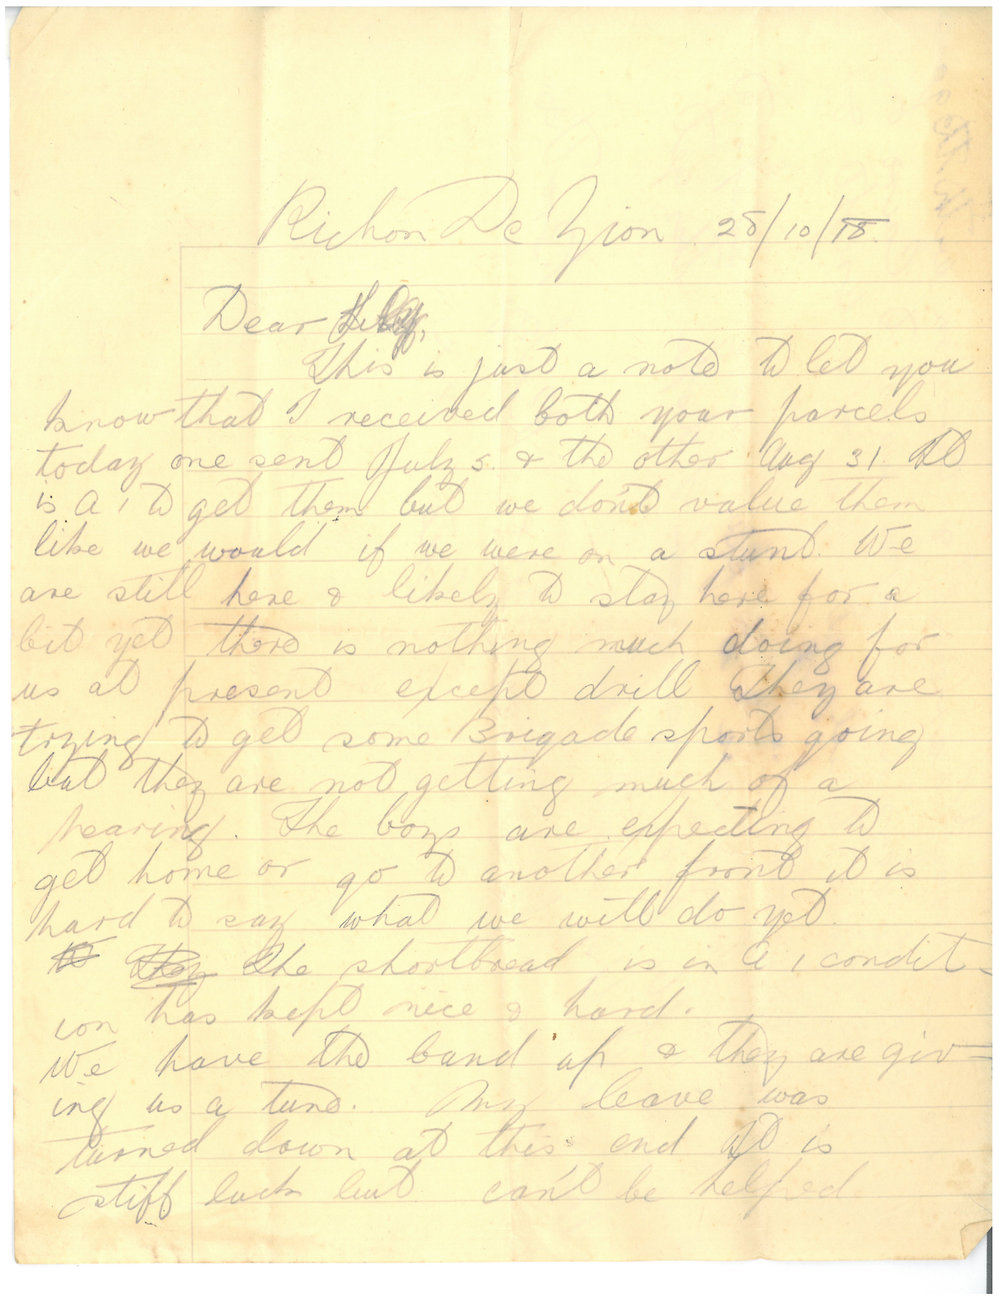 Richon De Zion 28/10/18.
Dear
This is just a note to let you
know that I received both your parcels
today one sent July 5. & the other Aug 31. It
is A 1 to get them but we don't value them
like we would if we were on a stunt. We
are still here & likely to stay here for a
bit yet there is nothing much doing for
us at present except drill They are
trying to get some Brigade sports going
but they are not getting much of a
hearing. The boys are expecting to
get home or go to another front it is
hard to say what we will do yet.
The shortbread is in A 1 condit-
ion has kept nice & hard.
We have the band up & they are giv-
ing us a tune. My leave was
turned down at this end It is
stiff luck but can't be helped